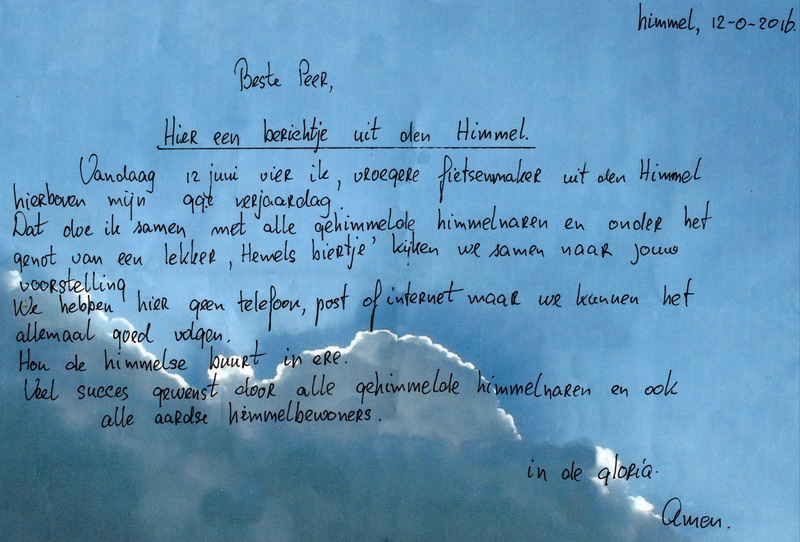 himmel, 12-0-2016.
Beste Peer,
Hier een berichtje uit den Himmel.
Vandaag 12 juni vier ik, vroegere fietsenmaker uit den Himmel
hierboven mijn 99e verjaardag.
Dat doe ik samen met alle gehimmelde himmelnaren en onder het
genot van een lekker ‚Hemels biertje’ kijken we samen naar jouw
voorstelling
We hebben hier geen telefoon, post of internet maar we kunnen het
allemaal goed volgen.
Hou de himmelse buurt in ere.
Veel succes gewenst door alle gehimmelde himmelnaren en ook
alle aardse himmelbewoners.
in de gloria.
Amen.